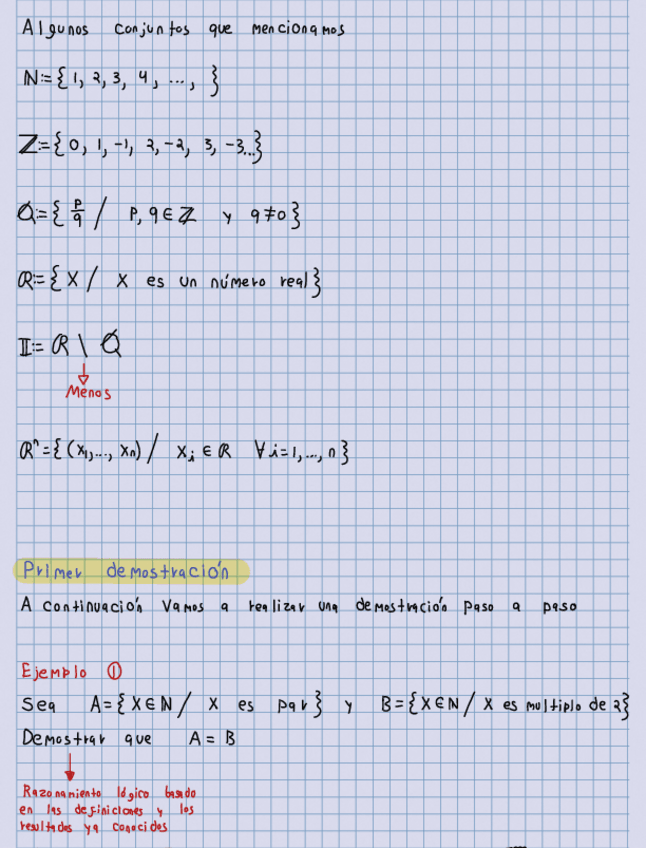 Algunos conjuntos que mencionamos
ℕ:={1, 2, 3, 4, ..., }
ℤ:={0, 1, -1, 2, -2, 3, -3,..}
ℚ:={p/q / p, q ∈ ℤ y q≠0}
ℝ:={x / x es un número real}
𝕀:= ℝ \ ℚ
Menos
ℝⁿ={(x₁,..., xₙ) / xᵢ ∈ ℝ ∀i=1,...,n}
Primer demostración
A continuación vamos a realizar una demostración paso a paso
Ejemplo ①
Sea A={x∈ℕ / x es par} y B={x∈ℕ / x es multiplo de 2}
Demostrar que A = B
Razonamiento lógico basado
en las definiciones y los
resultados ya conocidos